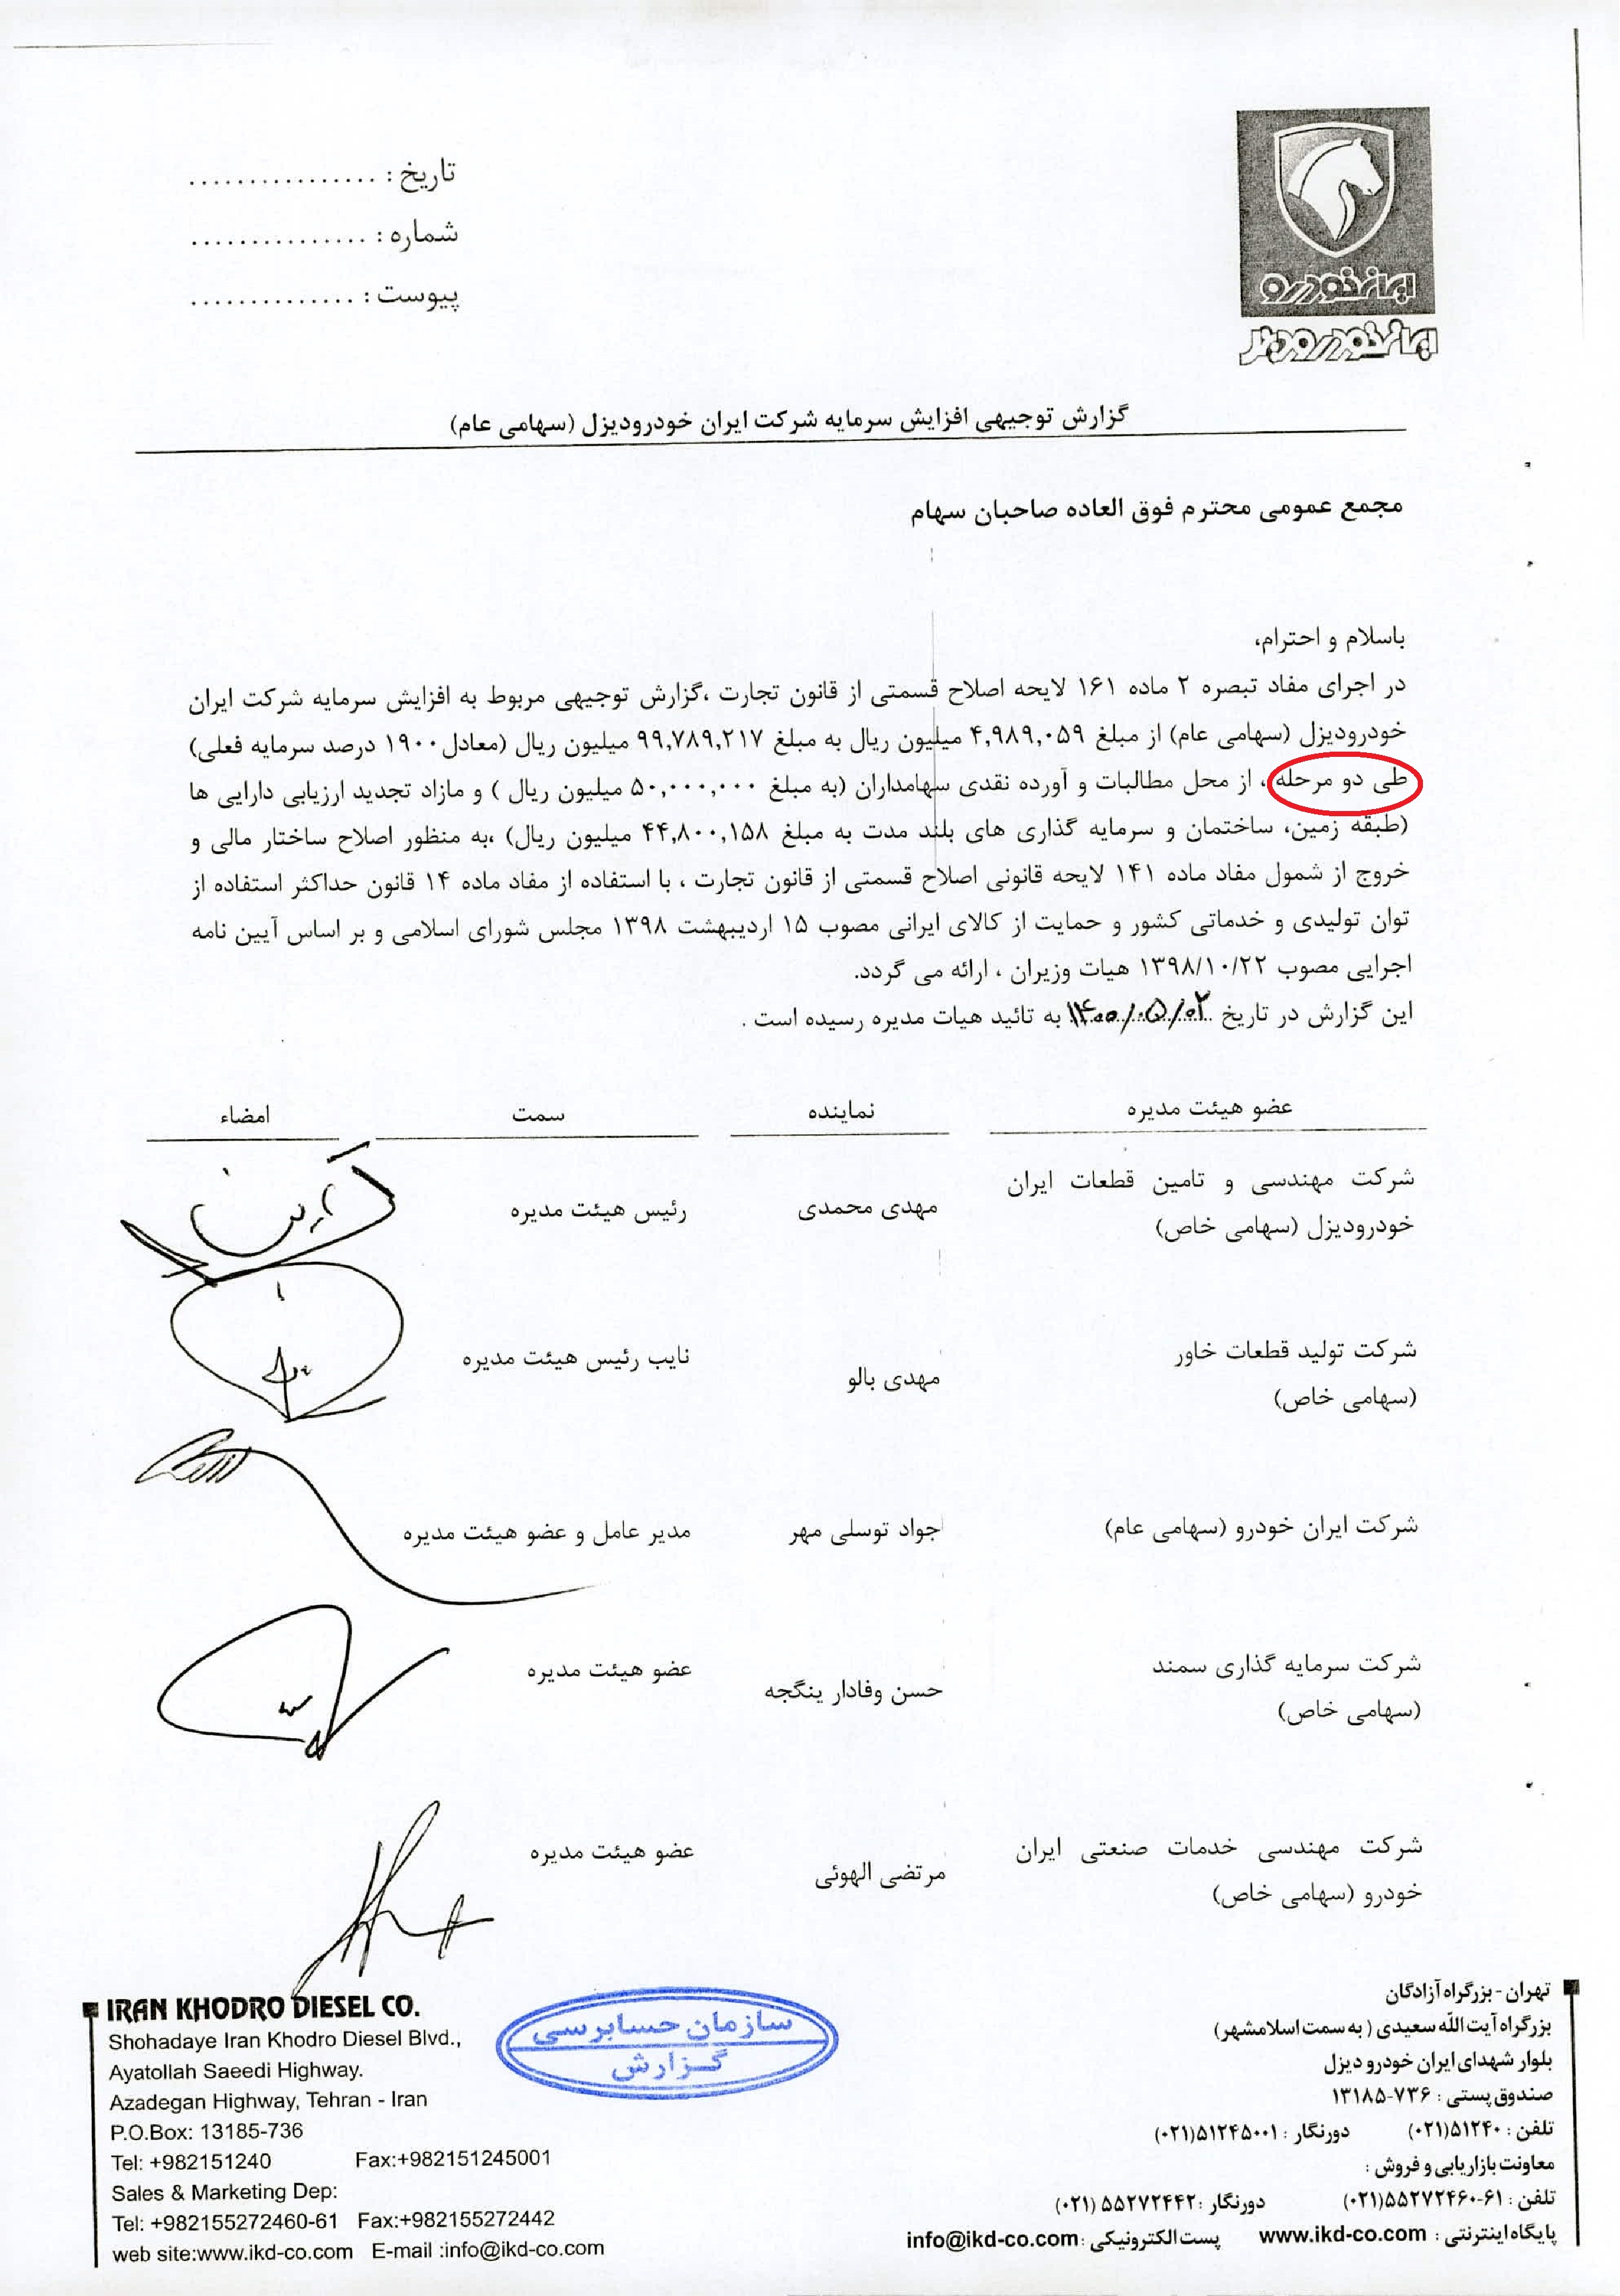 ایران خودرو
ایران خودرو دیزل
تاریخ : ................
شماره : ...............
پیوست : ..............
گزارش توجیهی افزایش سرمایه شرکت ایران خودرودیزل (سهامی عام)
مجمع عمومی محترم فوق العاده صاحبان سهام
باسلام و احترام،
در اجرای مفاد تبصره ۲ ماده ۱۶۱ لایحه اصلاح قسمتی از قانون تجارت ،گزارش توجیهی مربوط به افزایش سرمایه شرکت ایران
خودرودیزل (سهامی عام) از مبلغ ۴,۹۸۹,۰۵۹ میلیون ریال به مبلغ ۹۹,۷۸۹,۲۱۷ میلیون ریال (معادل ۱۹۰۰ درصد سرمایه فعلی)
طی دو مرحله ، از محل مطالبات و آورده نقدی سهامداران (به مبلغ ۵۰,۰۰۰,۰۰۰ میلیون ریال ) و مازاد تجدید ارزیابی دارایی ها
(طبقه زمین، ساختمان و سرمایه گذاری های بلند مدت به مبلغ ۴۴,۸۰۰,۱۵۸ میلیون ریال) ،به منظور اصلاح ساختار مالی و
خروج از شمول مفاد ماده ۱۴۱ لایحه قانونی اصلاح قسمتی از قانون تجارت ، با استفاده از مفاد ماده ۱۴ قانون حداکثر استفاده از
توان تولیدی و خدماتی کشور و حمایت از کالای ایرانی مصوب ۱۵ اردیبهشت ۱۳۹۸ مجلس شورای اسلامی و بر اساس آیین نامه
اجرایی مصوب ۱۳۹۸/۱۰/۲۲ هیات وزیران ، ارائه می گردد.
این گزارش در تاریخ ۱۴۰۰/۰۵/۰۲ به تائید هیات مدیره رسیده است .
عضو هیئت مدیره نماینده سمت امضاء
شرکت مهندسی و تامین قطعات ایران
خودرودیزل (سهامی خاص) مهدی محمدی رئیس هیئت مدیره
شرکت تولید قطعات خاور
(سهامی خاص) مهدی بالو نایب رئیس هیئت مدیره
شرکت ایران خودرو (سهامی عام) جواد توسلی مهر مدیر عامل و عضو هیئت مدیره
شرکت سرمایه گذاری سمند
(سهامی خاص) حسن وفادار ینگجه عضو هیئت مدیره
شرکت مهندسی خدمات صنعتی ایران
خودرو (سهامی خاص) مرتضی الهوئی عضو هیئت مدیره
سازمان حسابرسی
گزارش
تهران - بزرگراه آزادگان
بزرگراه آیت اللّه سعیدی ( به سمت اسلامشهر)
بلوار شهدای ایران خودرو دیزل
صندوق پستی : ۷۳۶-۱۳۱۸۵
تلفن : ۵۱۲۴۰(۰۲۱) دورنگار : ۵۱۲۴۵۰۰۱(۰۲۱)
معاونت بازاریابی و فروش :
تلفن : ۶۱-۵۵۲۷۲۴۶۰(۰۲۱) دورنگار : ۵۵۲۷۲۴۴۲ (۰۲۱)
پایگاه اینترنتی : www.ikd-co.com پست الکترونیکی : info@ikd-co.com
IRAN KHODRO DIESEL CO.
Shohadaye Iran Khodro Diesel Blvd.,
Ayatollah Saeedi Highway.
Azadegan Highway, Tehran - Iran
P.O.Box: 13185-736
Tel: +982151240 Fax:+982151245001
Sales & Marketing Dep:
Tel: +982155272460-61 Fax:+982155272442
web site:www.ikd-co.com E-mail :info@ikd-co.com